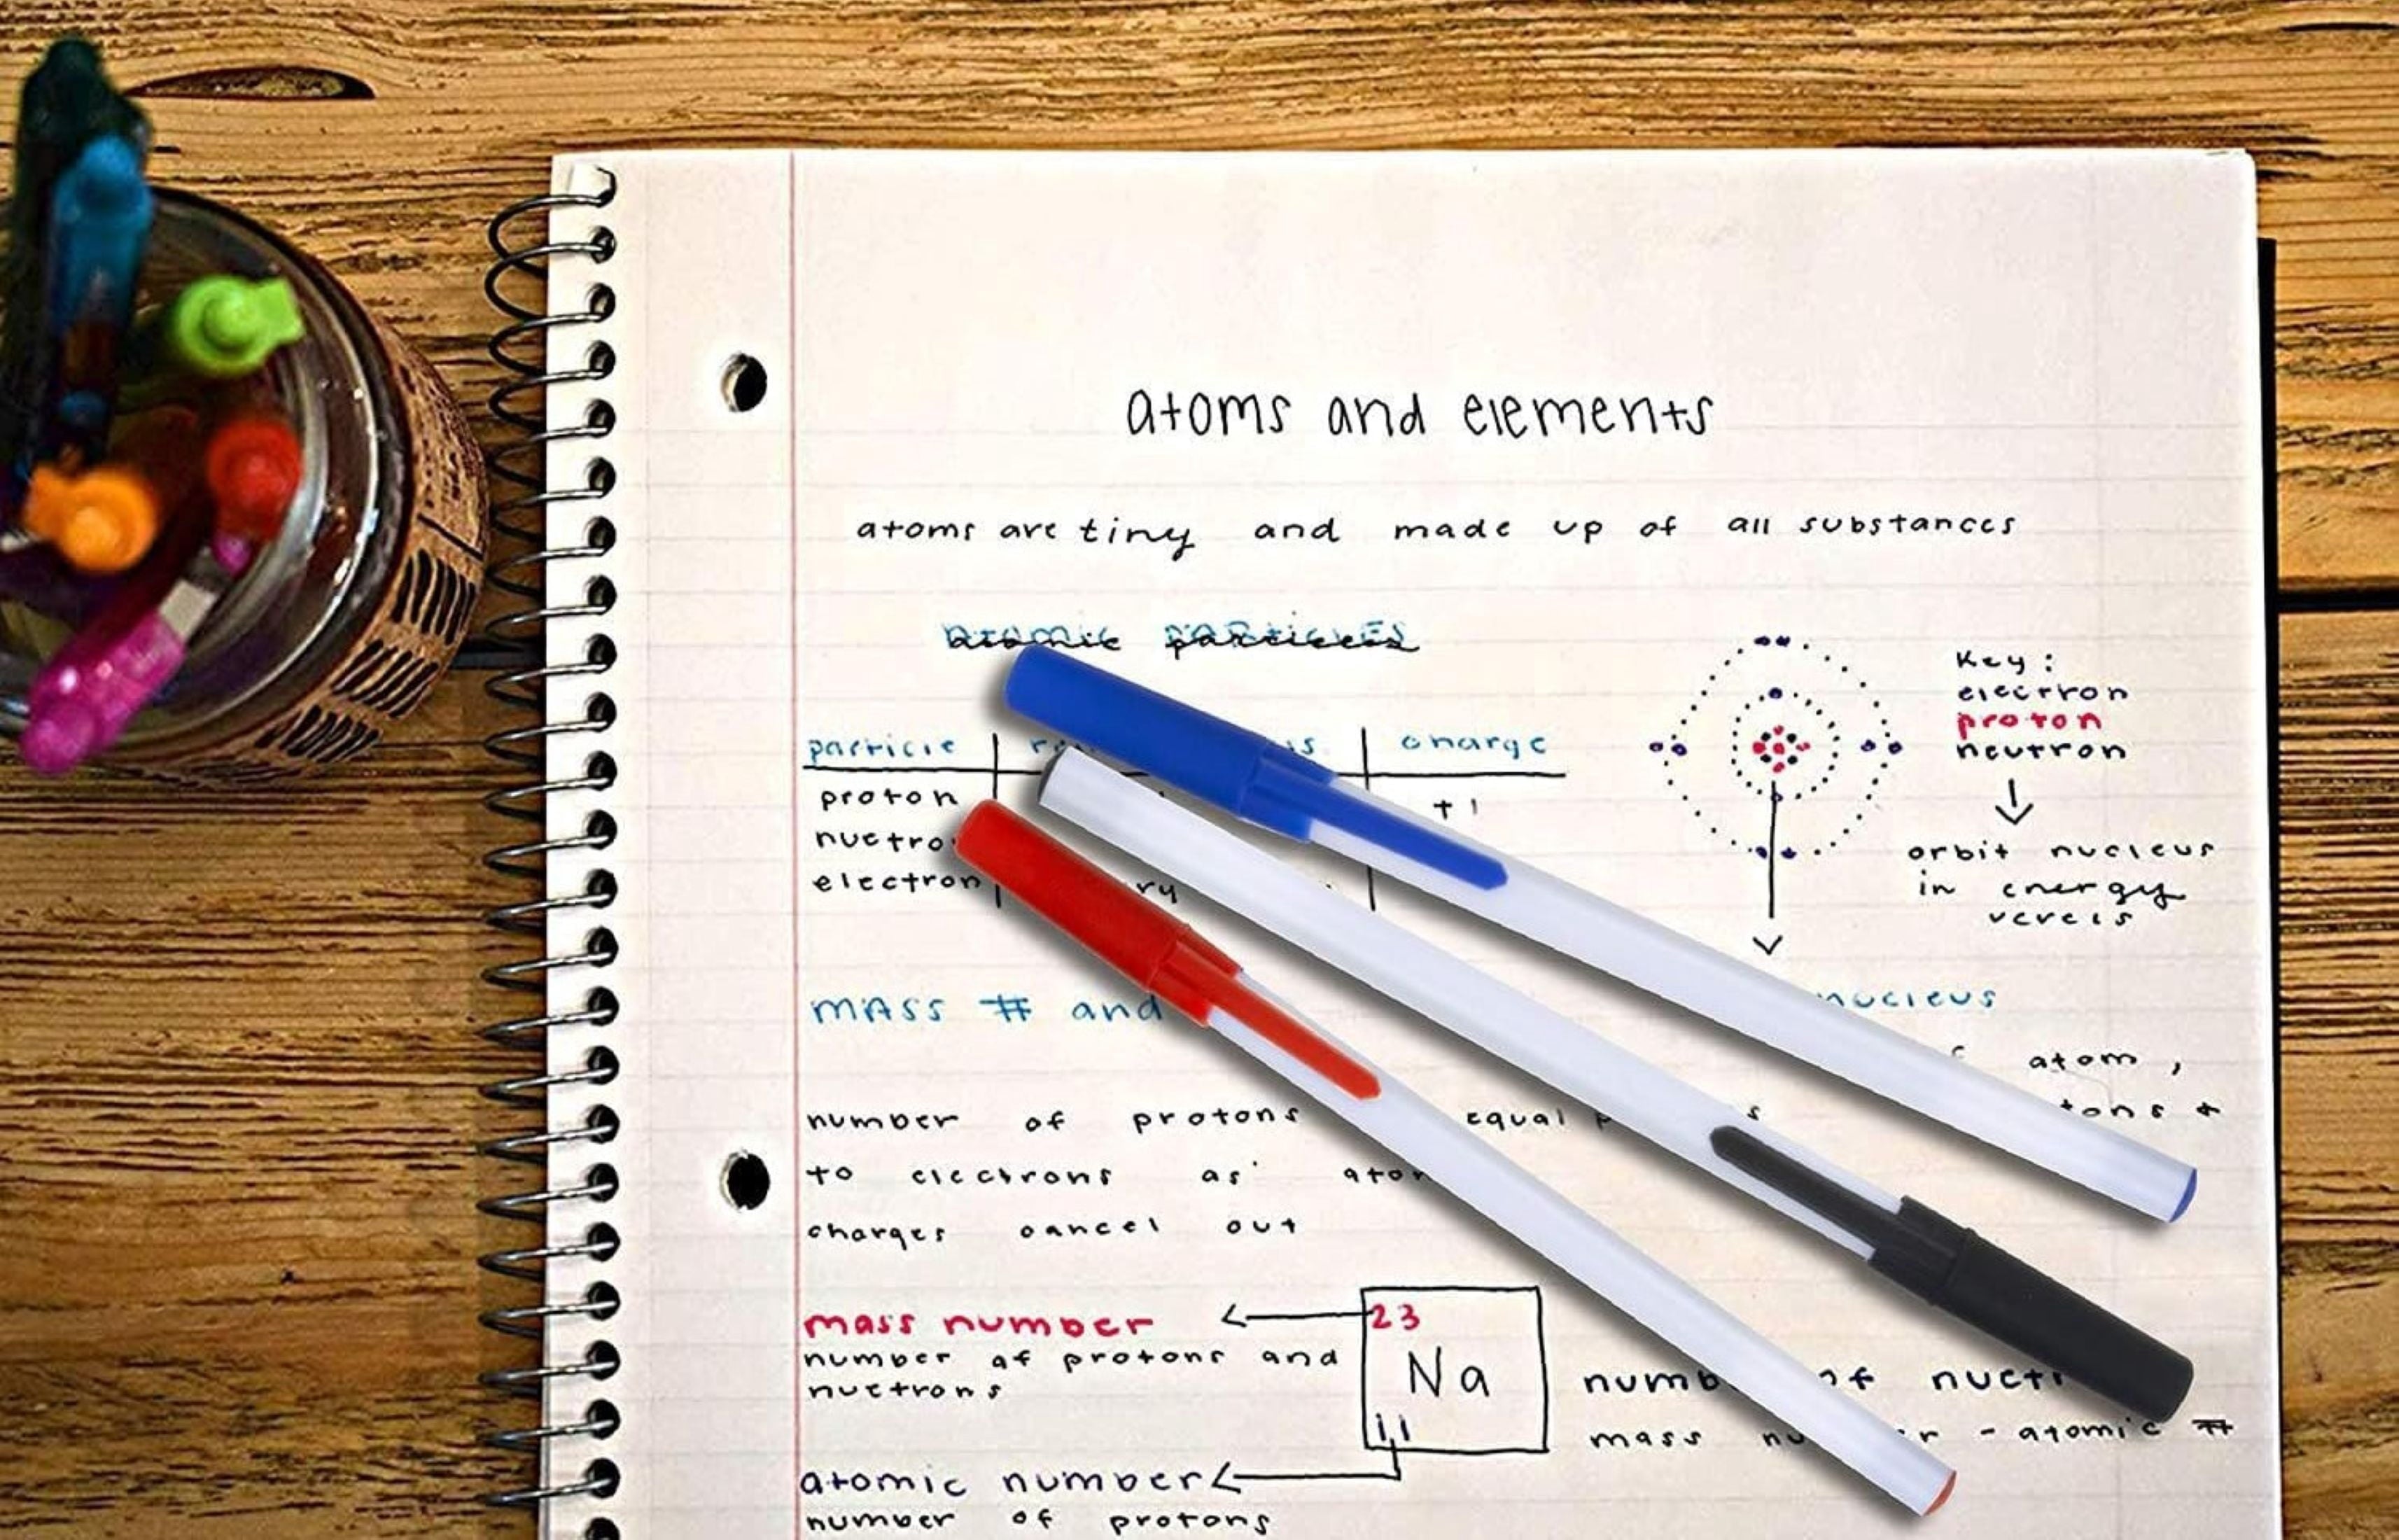 atoms and elements
atoms are tiny and made up of all substances
atomic particles
particle charge
proton +1
nuetro
electron
Key:
electron
proton
neutron
orbit nucleus
in energy
levels
mass # and nucleus
atom,
number of protons equal
to electrons as
charges cancel out
mass number 23
number of protons and
nuetrons
Na
11
of
mass - atomic #
atomic number
number of protons